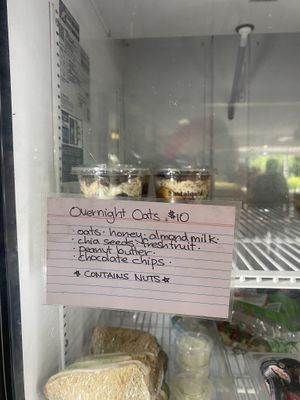 Overnight Oats $10
· oats · honey · almond milk ·
· chia seeds · fresh fruit ·
peanut butter ·
chocolate chips ·
* CONTAINS NUTS *